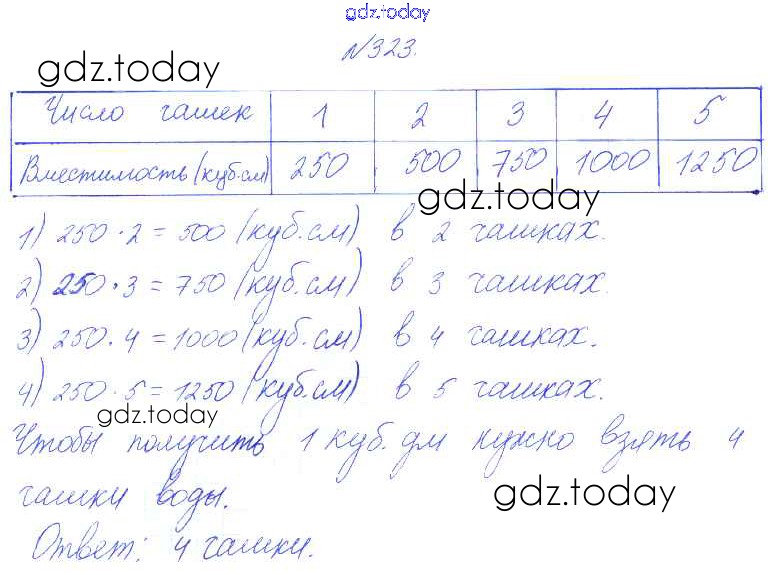 gdz.today
№323.
gdz.today
Число чашек 1 2 3 4 5
Вместимость (куб.см) 250 500 750 1000 1250
gdz.today
1) 250 · 2 = 500 (куб.см) в 2 чашках.
2) 250 · 3 = 750 (куб.см) в 3 чашках.
3) 250 · 4 = 1000 (куб.см) в 4 чашках.
4) 250 · 5 = 1250 (куб.см) в 5 чашках.
gdz.today
Чтобы получить 1 куб. дм нужно взять 4
чашки воды.
gdz.today
Ответ: 4 чашки.